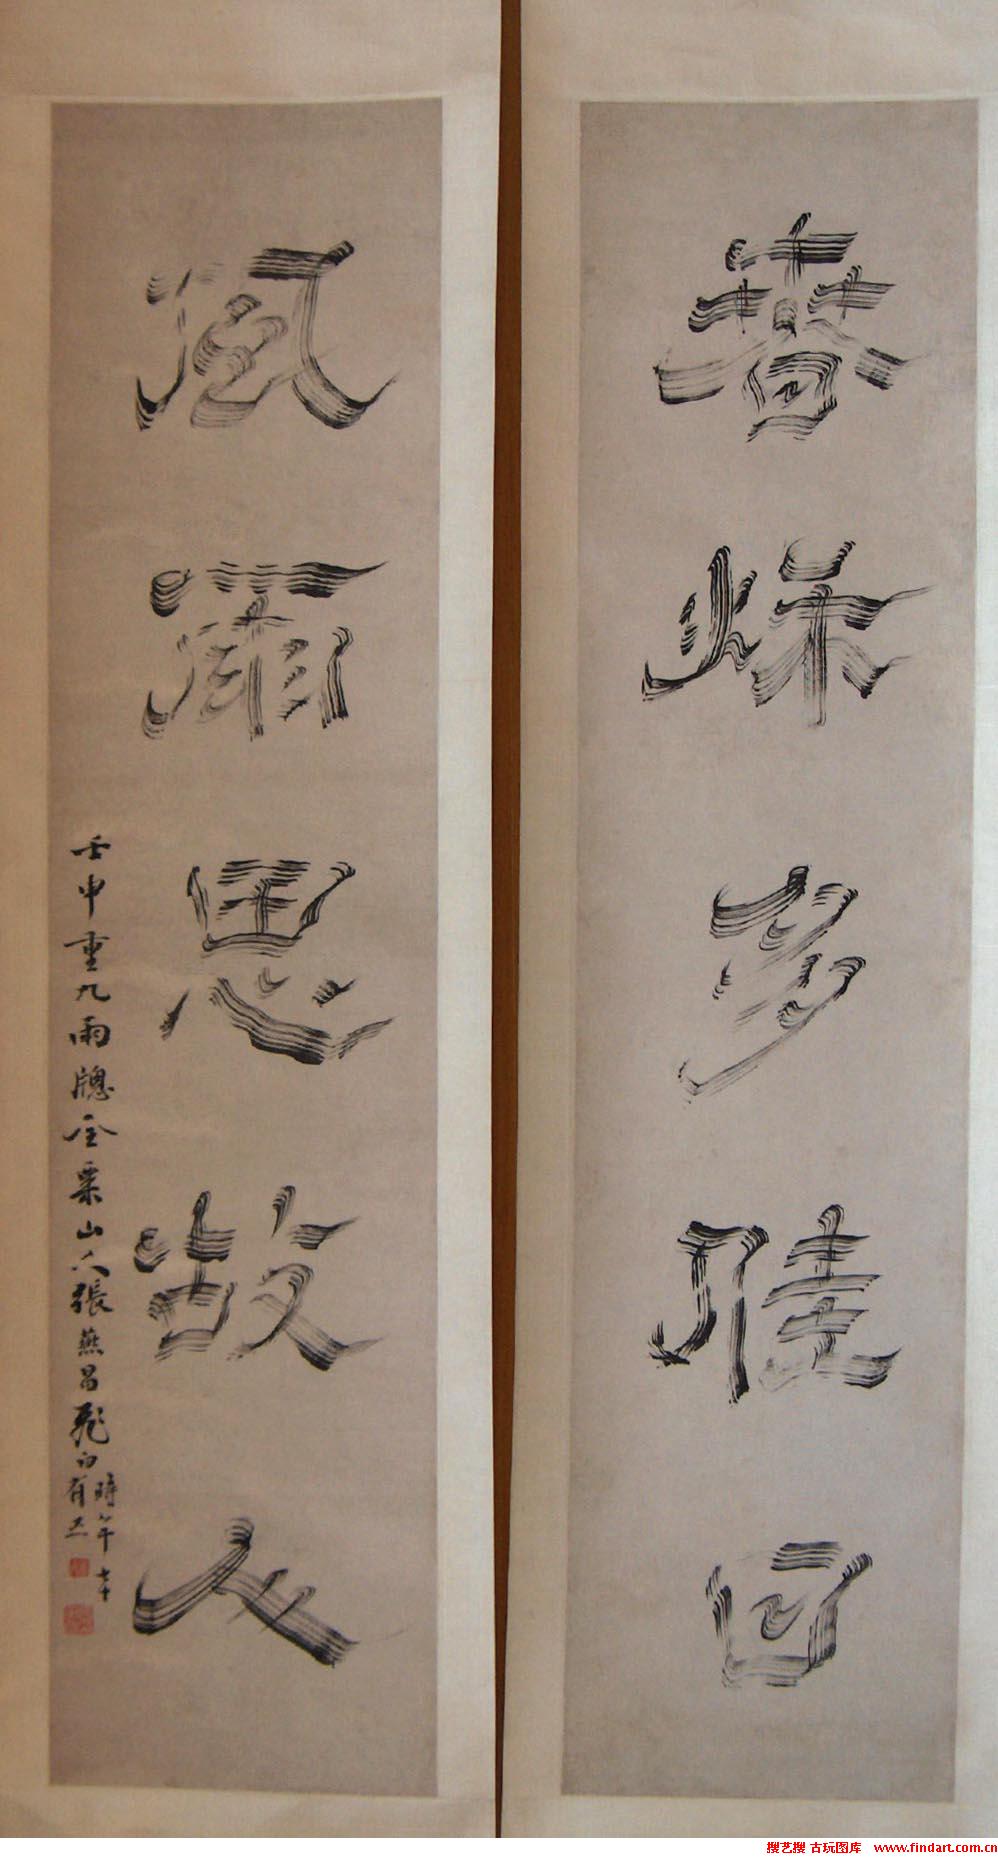 春秌多佳日
風雨思故人
壬申重九雨牕金粟山人張燕昌飛白
時年七十
有五
搜艺搜 古玩图库 www.findart.com.cn